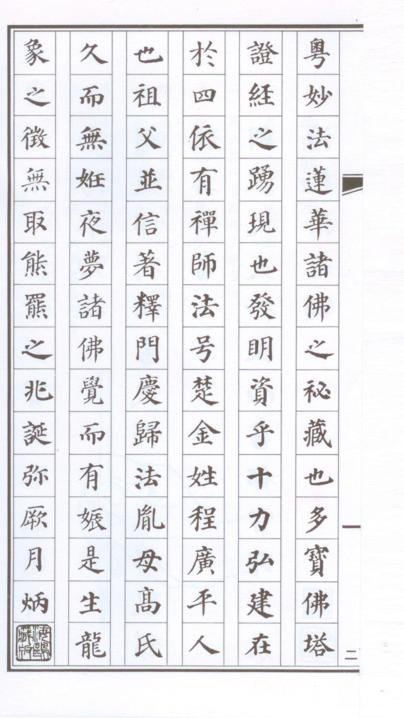 粤妙法蓮華諸佛之祕藏也多寶佛塔
證經之踴現也發明資乎十力弘建在
於四依有禪師法号楚金姓程廣平人
也祖父並信著釋門慶歸法胤母高氏
久而無姙夜夢諸佛覺而有娠是生龍
象之徵無取熊羆之兆誕弥厥月炳
二